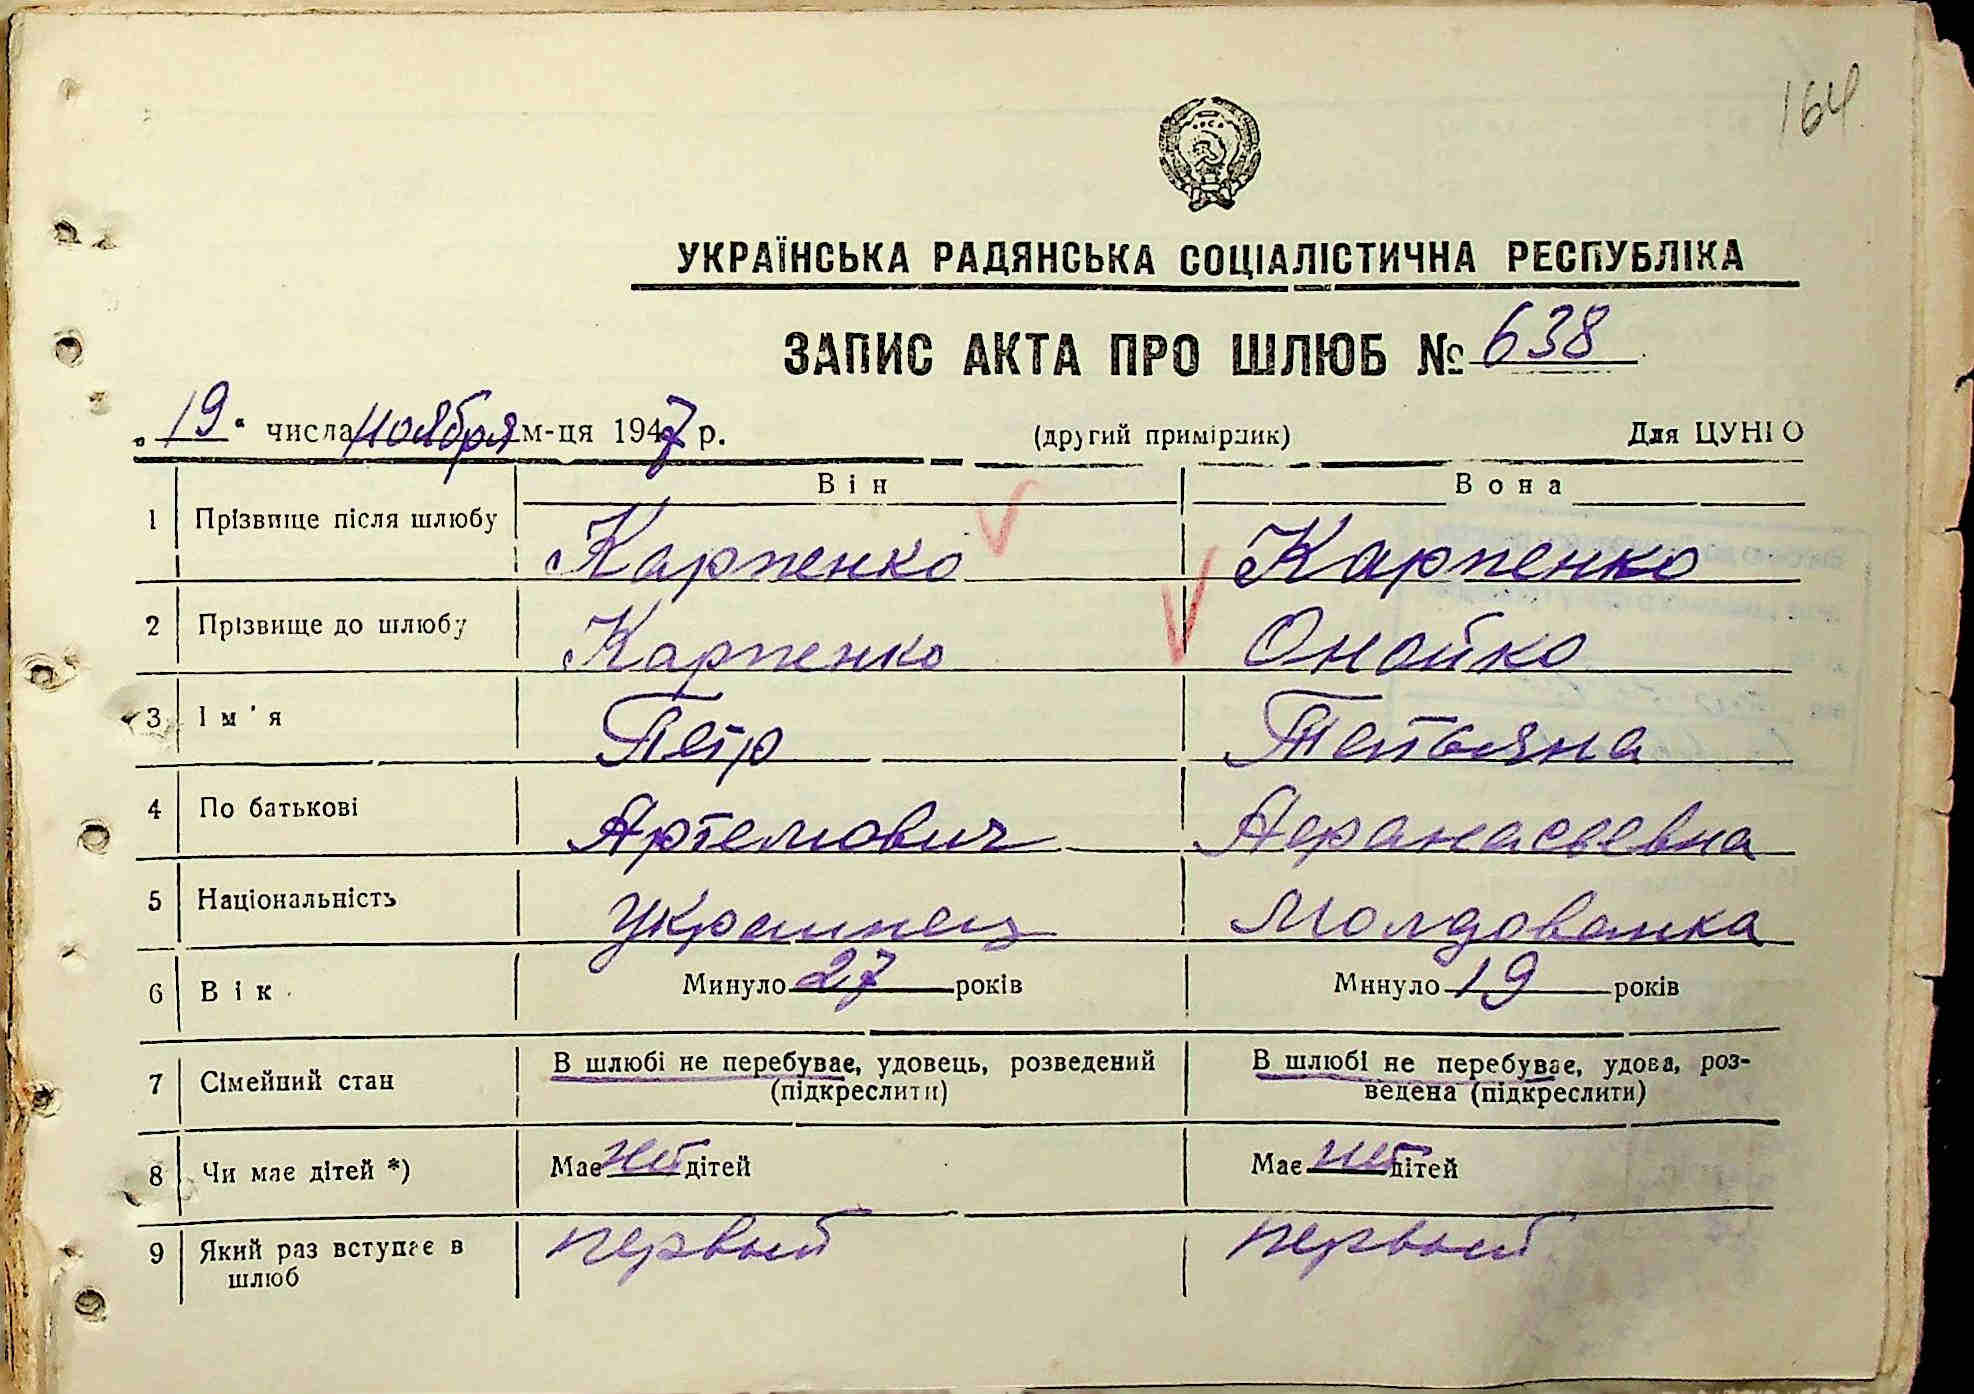 164
УКРАЇНСЬКА РАДЯНСЬКА СОЦІАЛІСТИЧНА РЕСПУБЛІКА
ЗАПИС АКТА ПРО ШЛЮБ № 638
„19“ числа ноября м-ця 1947 р. (другий примірник) Для ЦУНГО
Він Вона
1 Прізвище після шлюбу Карпенко Карпенко
2 Прізвище до шлюбу Карпенко Онойко
3 Ім'я Петр Татьяна
4 По батькові Артемович Афанасьевна
5 Національність украинец молдованка
6 Вік Минуло 27 років Минуло 19 років
7 Сімейний стан В шлюбі не перебуває, удовець, розведений (підкреслити) В шлюбі не перебуває, удова, роз-
ведена (підкреслити)
8 Чи має дітей *) Має нет дітей Має нет дітей
9 Який раз вступає в первый первый
шлюб